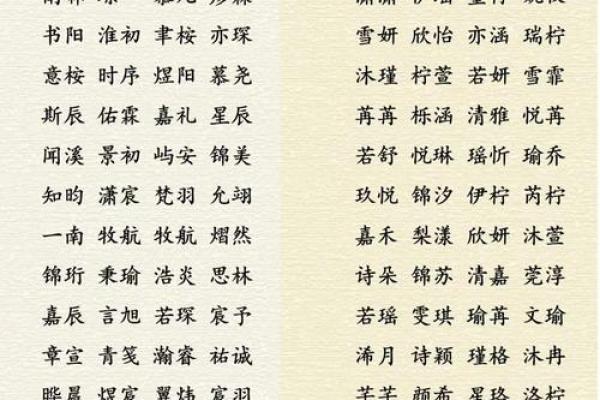 书阳 淮初 聿桉 亦琛
意桉 时序 煜阳 慕尧
斯辰 佑霖 嘉礼 星辰
闻溪 景初 屿安 锦美
知昀 潇宸 梵羽 允翊
一南 牧航 牧航 熠然
锦珩 秉瑜 浩炎 思林
嘉辰 言旭 若琛 宸予
章宣 青笺 瀚睿 祐诚
晔晨 煜宸 翼炜 宸羽
雪妍 欣怡 亦涵 瑞柠
沐瑾 柠萱 若妍 雪霏
苒苒 栎涵 清雅 悦苒
若舒 悦琳 瑶忻 瑜乔
玖悦 锦汐 伊柠 芮柠
嘉禾 梨漾 欣妍 沐萱
诗朵 锦苏 清嘉 莞淳
若瑶 雯琪 瑜苒 文瑜
浠月 诗颖 瑾格 沐冉
芊芊 颜希 星珞 洛柠